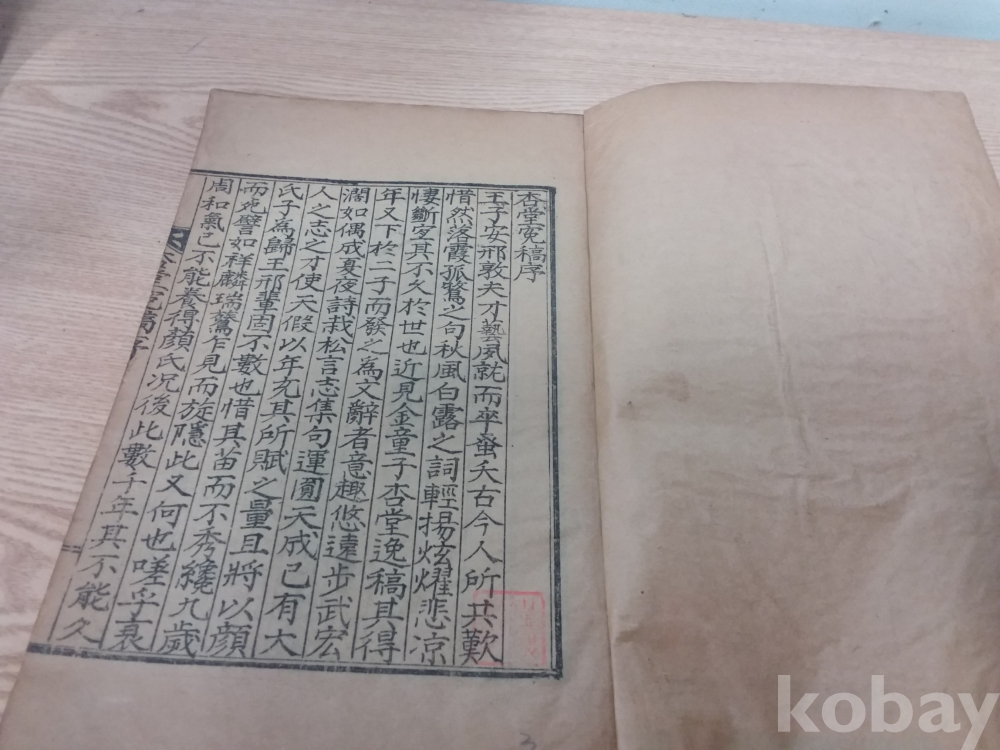 杏堂寃稿序
王子安邢敦夫才藝夙就而卒蚤夭古今人所共歎
惜然落霞孤鶩之句秋風白露之詞輕揚炫燿悲凉
悽斷宜其不久於世也近見金童子杏堂逸稿其得
年又下於二子而發之為文辭者意趣悠遠步武宏
濶如偶成夏夜詩栽松言志集句運圓天成已有大
人之志之才使天假以年充其所賦之量且將以顔
氏子為歸王邢輩固不數也惜其苗而不秀纔九歲
而死譬如祥麟瑞鸑乍見而旋隱此又何也嗟乎衰
周和氣已不能養得顔氏况後此數千年其不能久
kobay